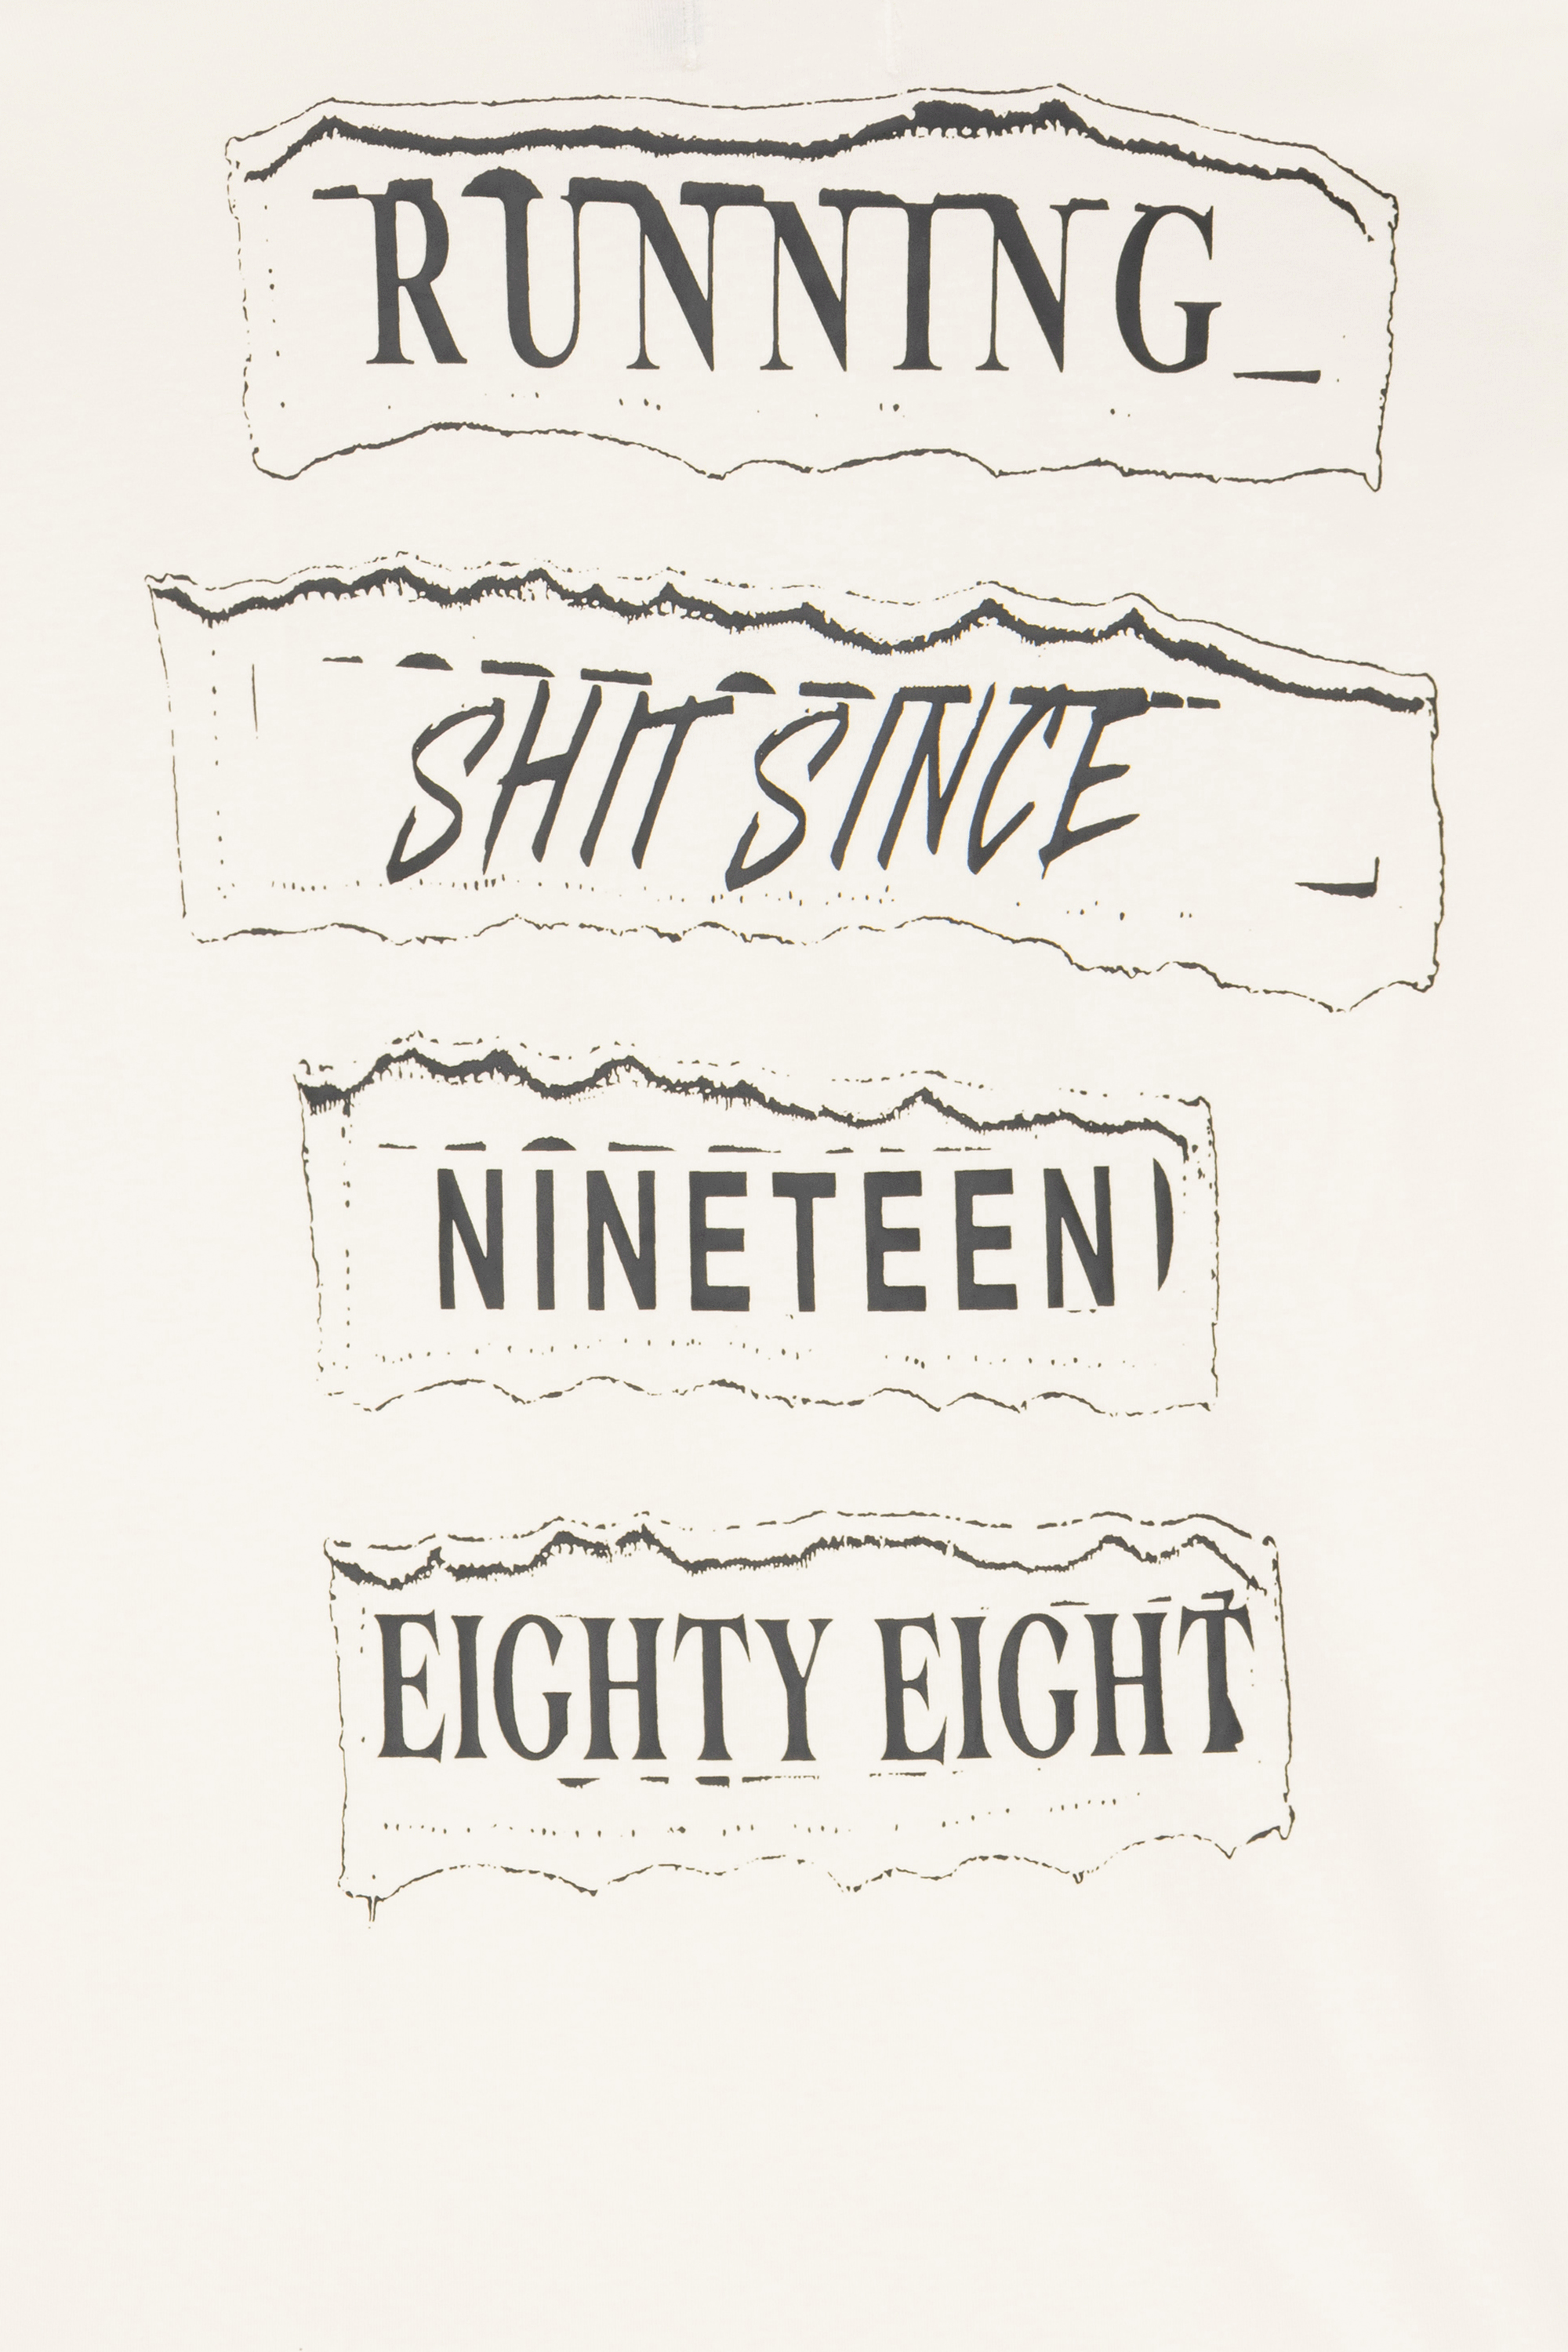 RUNNING_
SHIT SINCE
NINETEEN
EIGHTY EIGHT